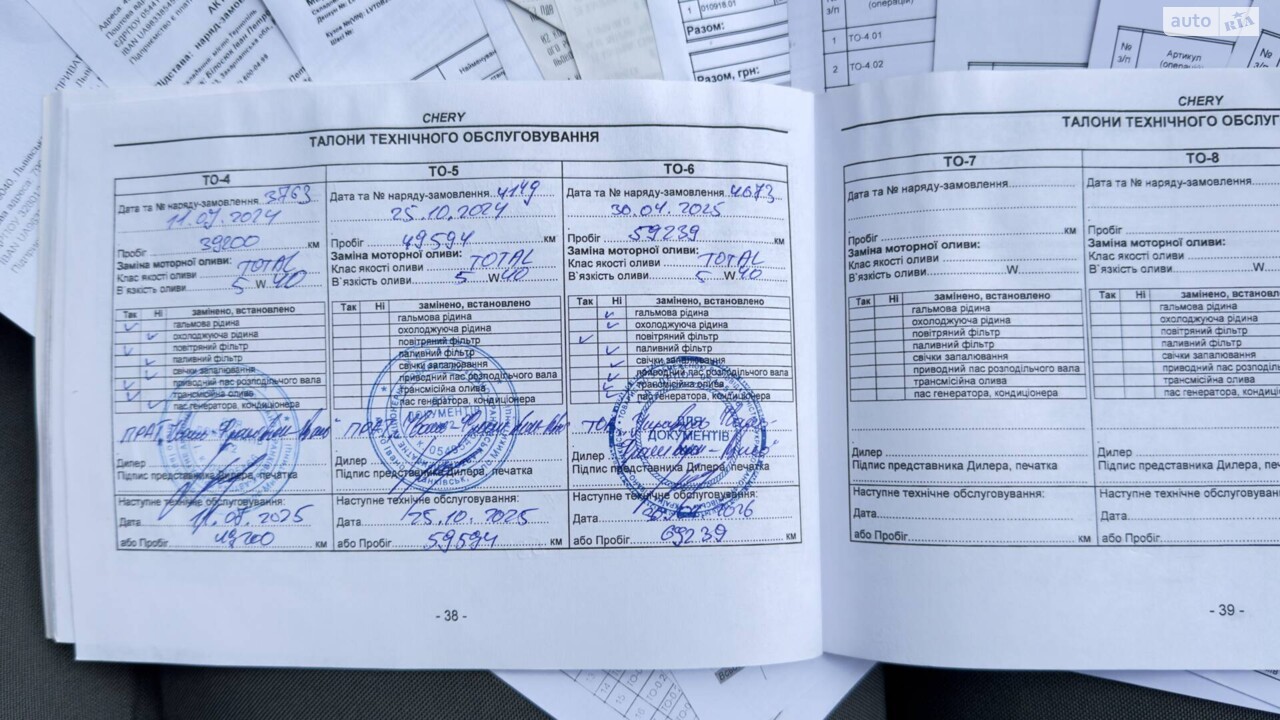 auto RIA
010918.01
Разом:
Разом, грн:
№ з/п
(операція)
1 ТО-4.01
2 ТО-4.02
№ з/п
Артикул
№ з/п
CHERY
ТАЛОНИ ТЕХНІЧНОГО ОБСЛУГОВУВАННЯ
ТО-4
Дата та № наряду-замовлення 3763
Пробіг 39200 км
Заміна моторної оливи:
Клас якості оливи TOTAL
В`язкість оливи 5 W 40
Так Ні замінено, встановлено
гальмова рідина
охолоджуюча рідина
повітряний фільтр
паливний фільтр
свічки запалювання
приводний пас розподільчого вала
трансмісійна олива
пас генератора, кондиціонера
Дилер
Підпис представника Дилера, печатка
Наступне технічне обслуговування:
Дата
або Пробіг 49200 км
ТО-5
Дата та № наряду-замовлення 4149
25.10.2024
Пробіг 49594 км
Заміна моторної оливи:
Клас якості оливи TOTAL
В`язкість оливи 5 W 40
Так Ні замінено, встановлено
гальмова рідина
охолоджуюча рідина
повітряний фільтр
паливний фільтр
свічки запалювання
приводний пас розподільчого вала
трансмісійна олива
пас генератора, кондиціонера
Дилер
Підпис представника Дилера, печатка
Наступне технічне обслуговування:
Дата 25.10.2025
або Пробіг 59594 км
ТО-6
Дата та № наряду-замовлення 4673
30.04.2025
Пробіг 59239 км
Заміна моторної оливи:
Клас якості оливи TOTAL
В`язкість оливи 5 W 40
Так Ні замінено, встановлено
гальмова рідина
охолоджуюча рідина
повітряний фільтр
паливний фільтр
свічки запалювання
приводний пас розподільчого вала
трансмісійна олива
пас генератора, кондиціонера
ДЛЯ
ДОКУМЕНТІВ
Дилер
Підпис представника Дилера, печатка
Наступне технічне обслуговування:
Дата
або Пробіг 69239 км
- 38 -
CHERY
ТАЛОНИ ТЕХНІЧНОГО ОБСЛУГ
ТО-7
Дата та № наряду-замовлення
Пробіг км
Заміна моторної оливи:
Клас якості оливи
В`язкість оливи W
Так Ні замінено, встановлено
гальмова рідина
охолоджуюча рідина
повітряний фільтр
паливний фільтр
свічки запалювання
приводний пас розподільчого вала
трансмісійна олива
пас генератора, кондиціонера
Дилер
Підпис представника Дилера, печатка
Наступне технічне обслуговування:
Дата
або Пробіг км
ТО-8
Дата та № наряду-замовлення
Пробіг
Заміна моторної оливи:
Клас якості оливи
В`язкість оливи W
Так Ні замінено, встановлен
гальмова рідина
охолоджуюча рідина
повітряний фільтр
паливний фільтр
свічки запалювання
приводний пас розподі
трансмісійна олива
пас генератора, конди
Дилер
Підпис представника Дилера, печат
Наступне технічне обслуговування
Дата
або Пробіг
- 39 -